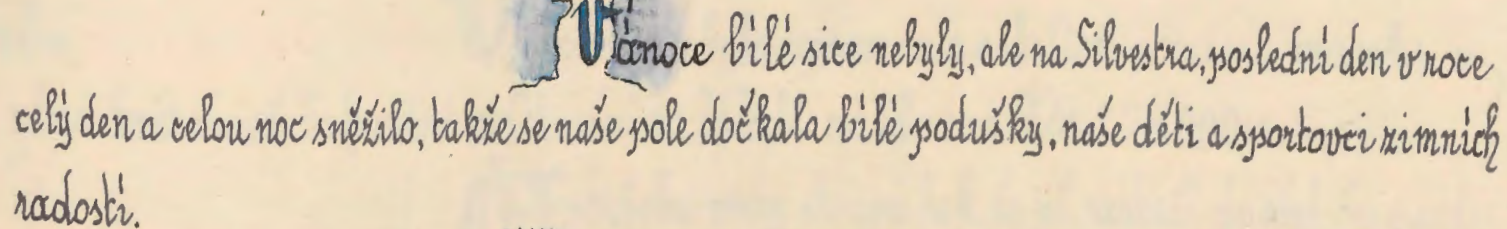 Vánoce bílé sice nebyly, ale na Silvestra, poslední den v roce
celý den a celou noc sněžilo, takže se naše pole dočkala bílé podušky, naše děti a sportovci zimních
radostí.